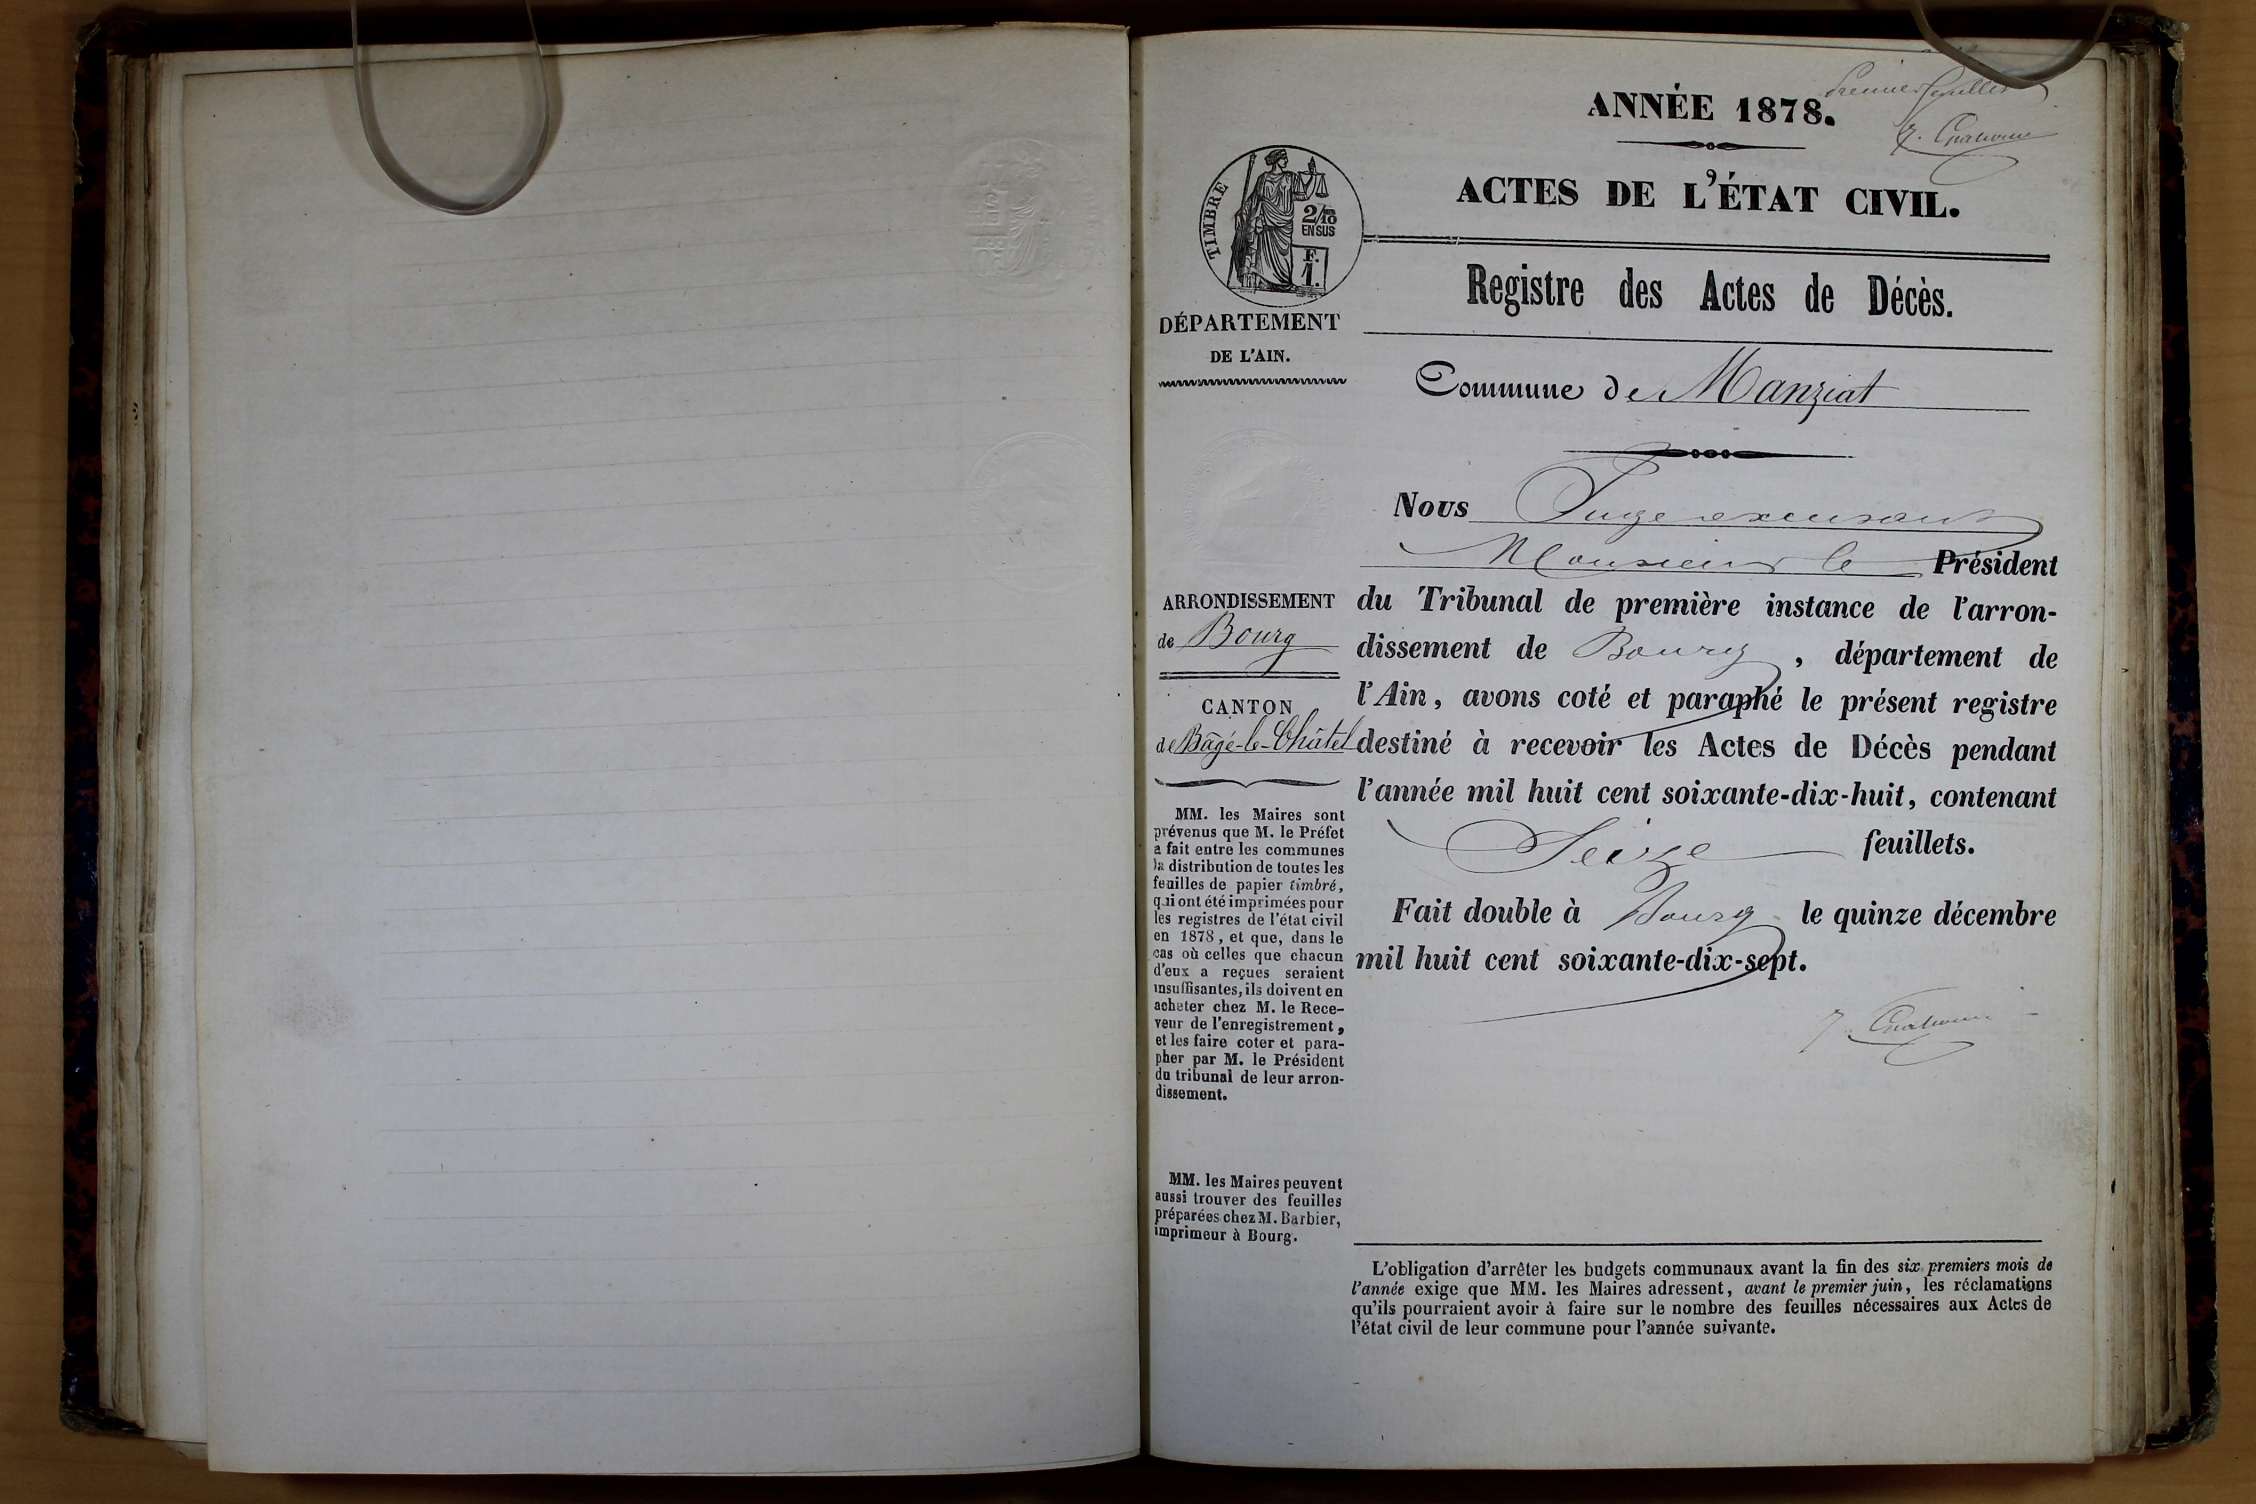 Premier feuillet
ANNÉE 1878.
ACTES DE L'ÉTAT CIVIL.
TIMBRE
2/10
EN SUS
F.
1.
Registre des Actes de Décès.
DÉPARTEMENT
DE L'AIN.
Commune de Manziat
Nous Juge excusant
Monsieur le Président
du Tribunal de première instance de l'arron-
dissement de Bourg, département de
l'Ain, avons coté et paraphé le présent registre
destiné à recevoir les Actes de Décès pendant
l'année mil huit cent soixante-dix-huit, contenant
Seize feuillets.
Fait double à Bourg le quinze décembre
mil huit cent soixante-dix-sept.
ARRONDISSEMENT
de Bourg
CANTON
de Bâgé-le-Châtel
MM. les Maires sont
prévenus que M. le Préfet
a fait entre les communes
la distribution de toutes les
feuilles de papier timbré,
qui ont été imprimées pour
les registres de l'état civil
en 1878, et que, dans le
cas où celles que chacun
d'eux a reçues seraient
insuffisantes, ils doivent en
acheter chez M. le Rece-
veur de l'enregistrement,
et les faire coter et para-
pher par M. le Président
du tribunal de leur arron-
dissement.
MM. les Maires peuvent
aussi trouver des feuilles
préparées chez M. Barbier,
imprimeur à Bourg.
L'obligation d'arrêter les budgets communaux avant la fin des six premiers mois de
l'année exige que MM. les Maires adressent, avant le premier juin, les réclamations
qu'ils pourraient avoir à faire sur le nombre des feuilles nécessaires aux Actes de
l'état civil de leur commune pour l'année suivante.